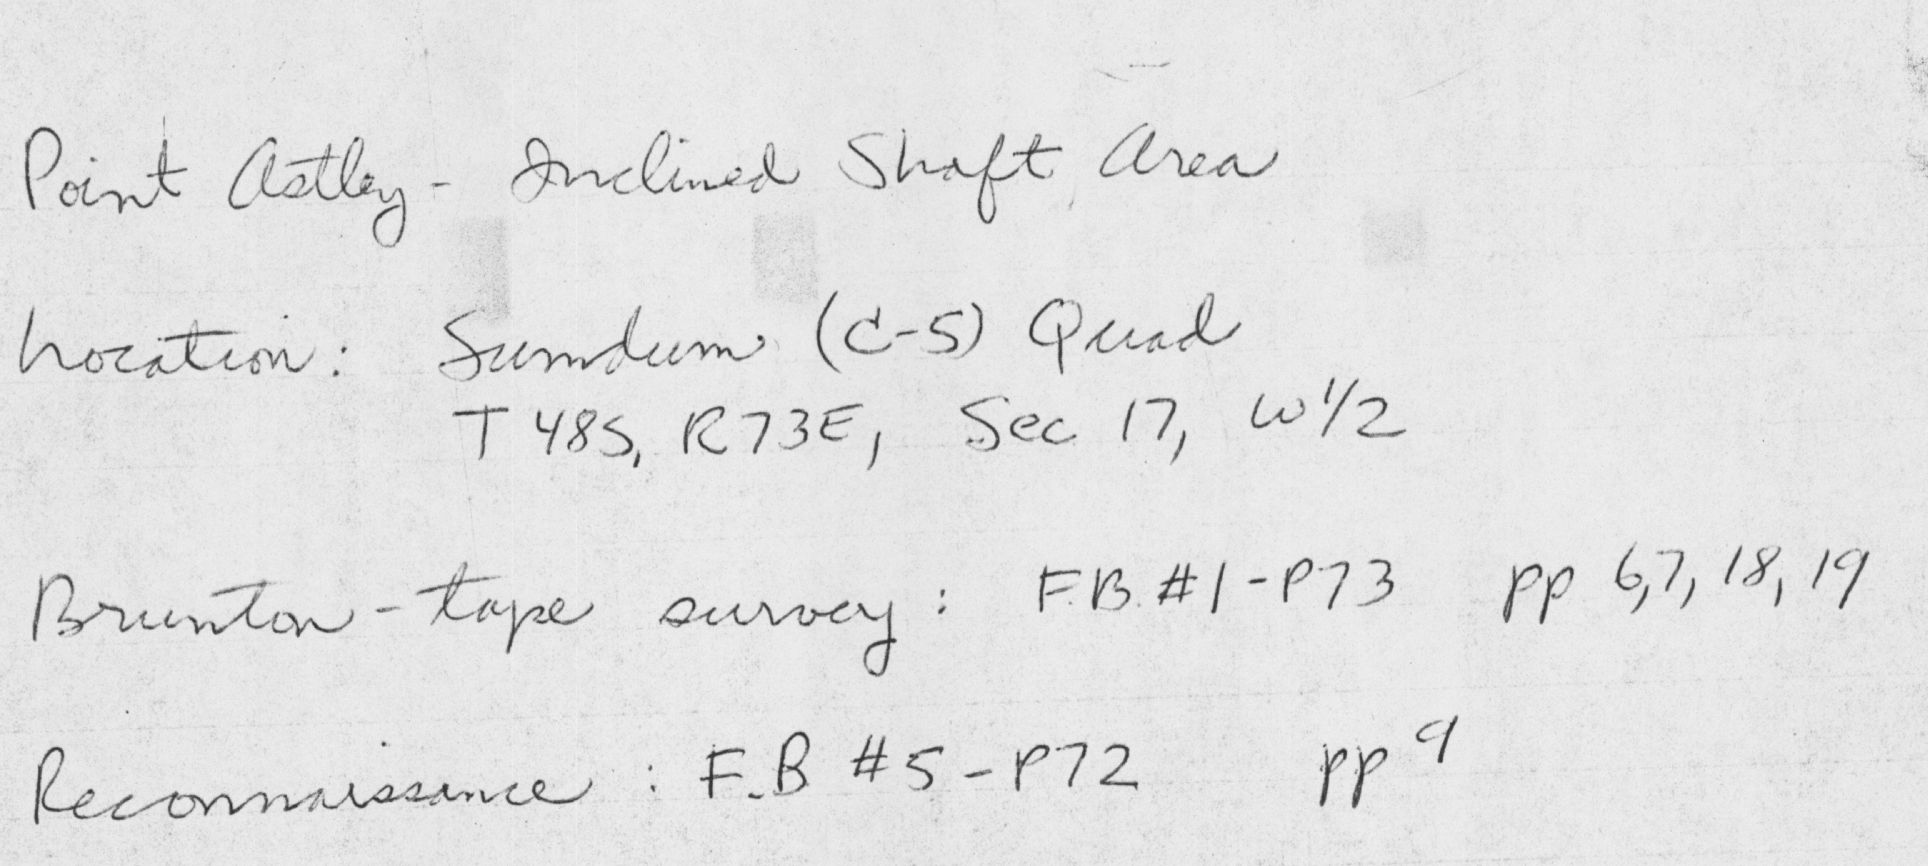 Point Astley - Inclined Shaft Area
Location: Sumdum (C-5) Quad
T 48S, R73E, Sec 17, W 1/2
Brunton-tape survey: F.B. #1-P73 pp 6,7, 18, 19
Reconnaissance: F.B #5-P72 pp 9